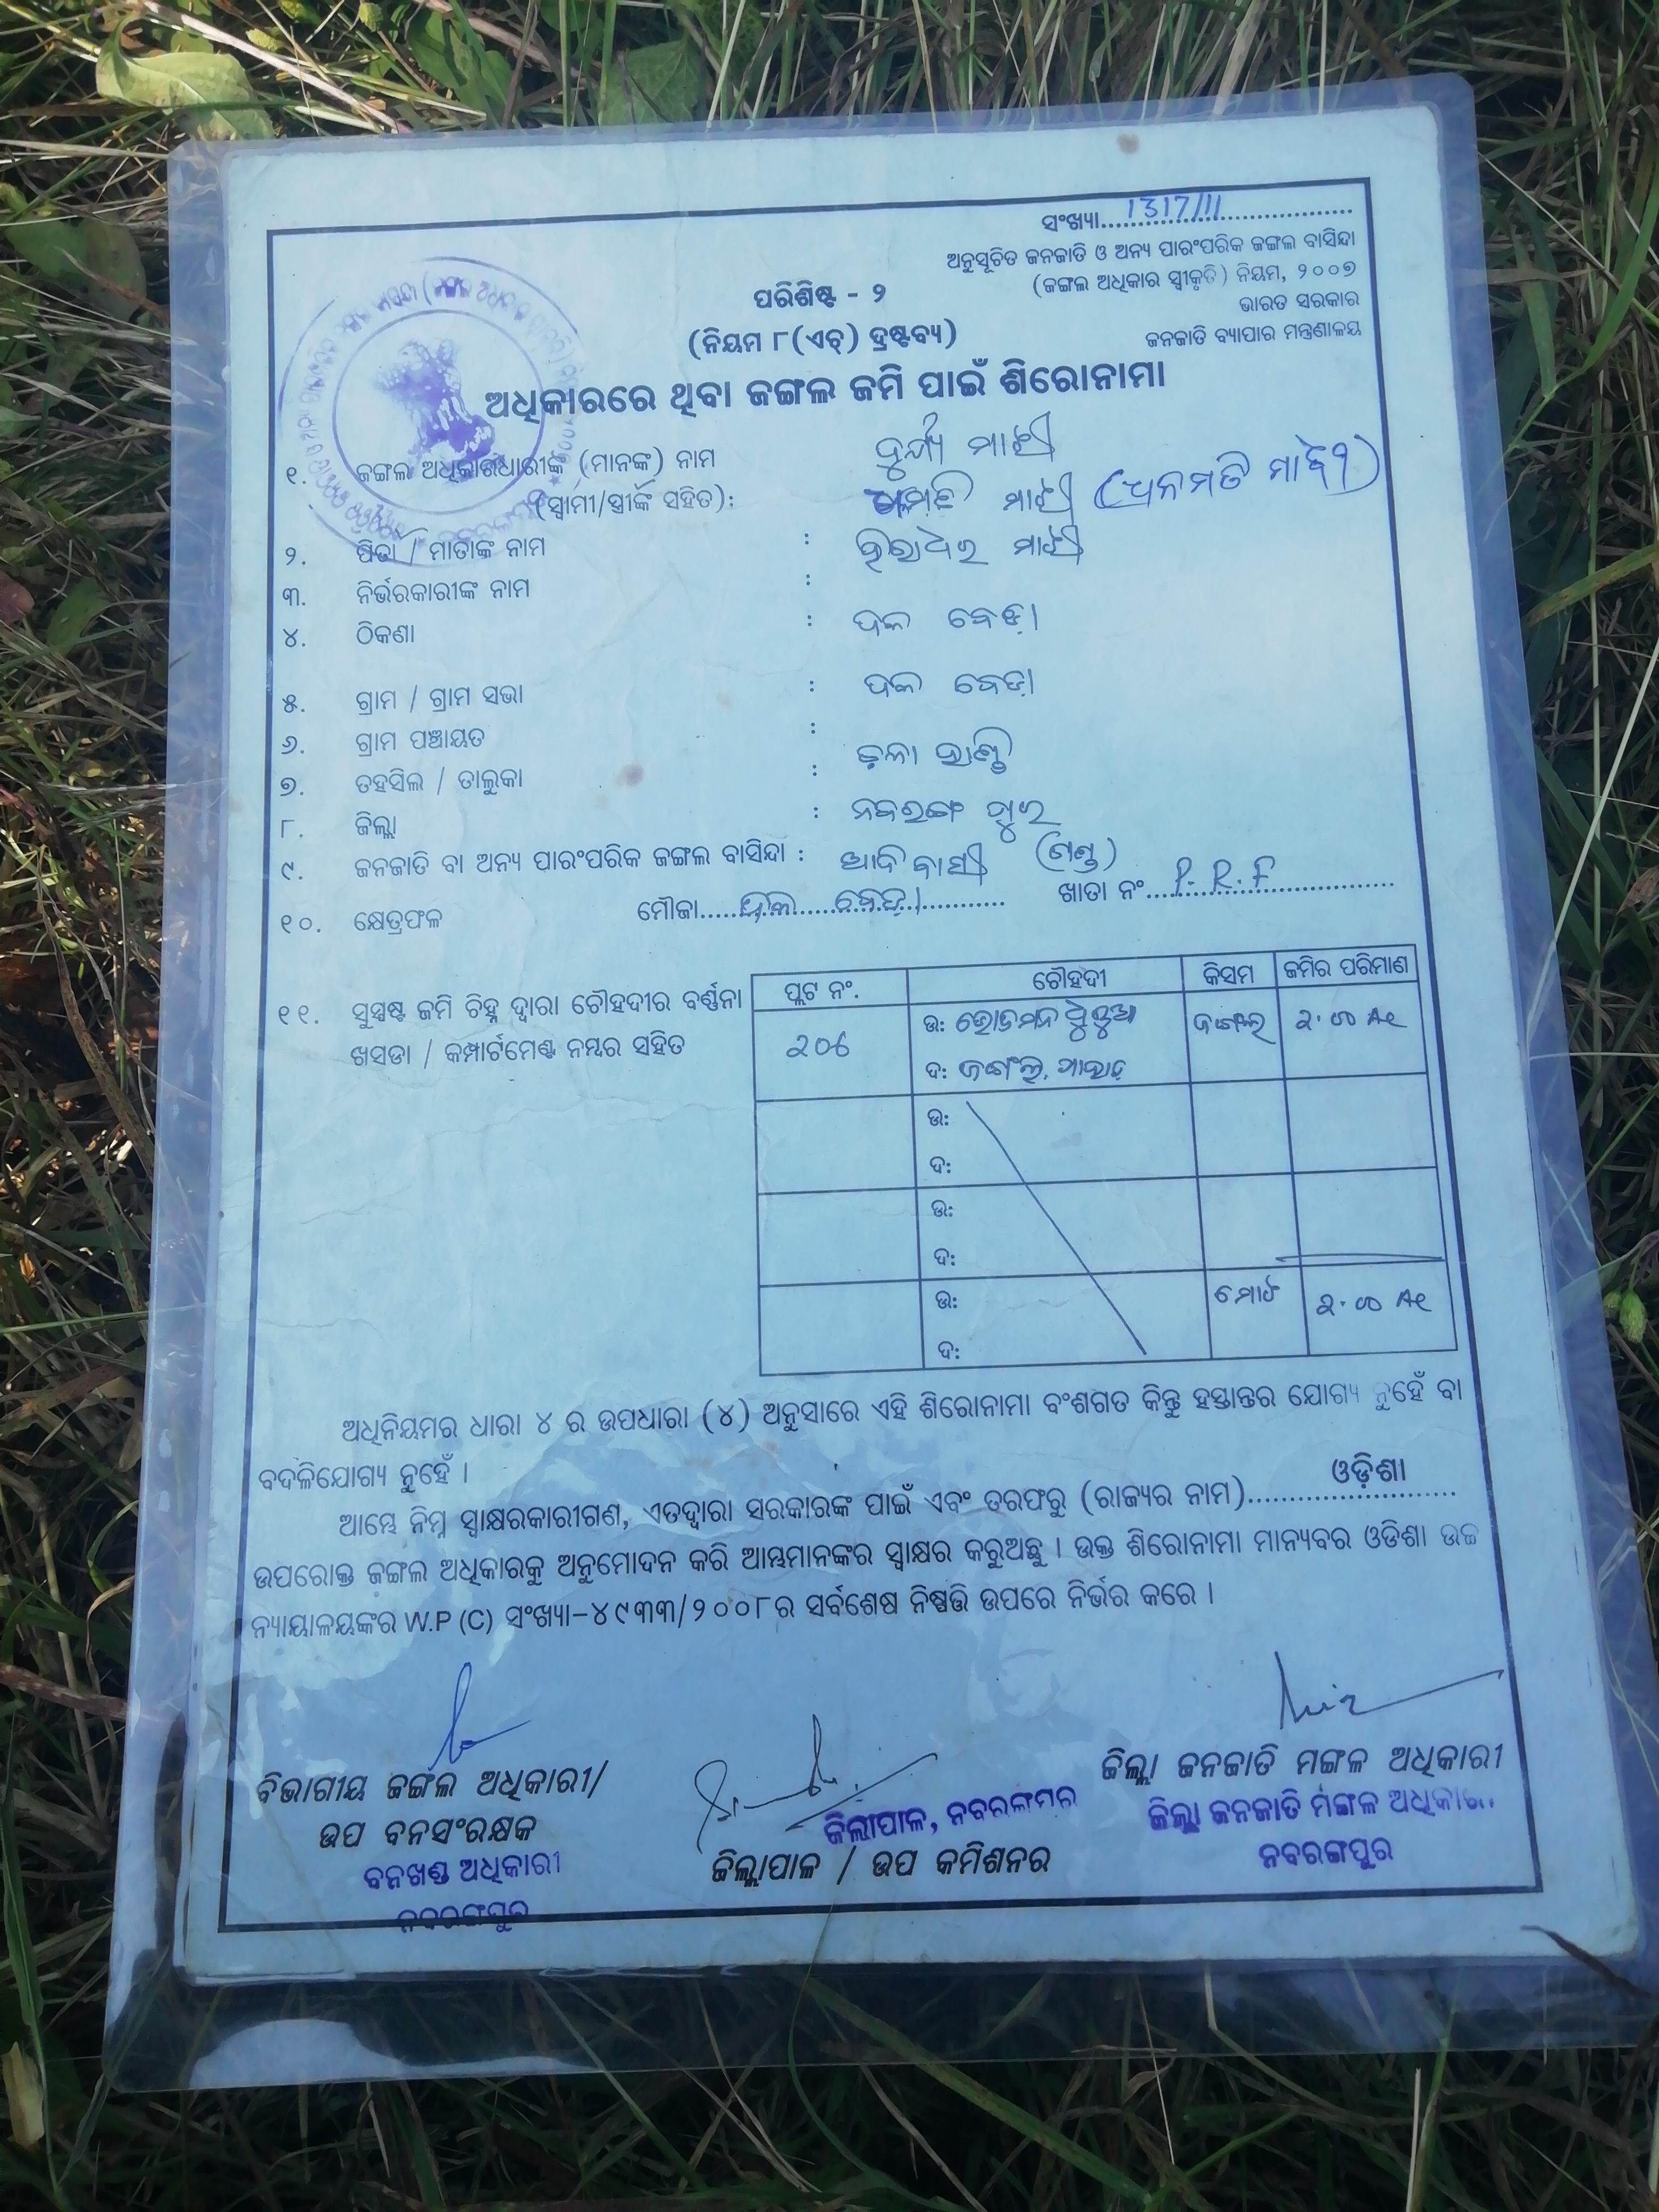 ସଂଖ୍ୟା 1317/11
ଅନୁସୂଚିତ ଜନଜାତି ଓ ଅନ୍ୟ ପାରଂପରିକ ଜଙ୍ଗଲ ବାସିନ୍ଦା
(ଜଙ୍ଗଲ ଅଧିକାର ସ୍ୱୀକୃତି) ନିୟମ, ୨୦୦୭
ଭାରତ ସରକାର
ଜନଜାତି ବ୍ୟାପାର ମନ୍ତ୍ରଣାଳୟ
ପରିଶିଷ୍ଟ - ୨
(ନିୟମ ୮(ଏଚ୍) ଦ୍ରଷ୍ଟବ୍ୟ)
ଅଧିକାରରେ ଥିବା ଜଙ୍ଗଲ ଜମି ପାଇଁ ଶିରୋନାମା
୧. ଜଙ୍ଗଲ ଅଧିକାରଧାରୀଙ୍କ (ମାନଙ୍କ) ନାମ ମାଝୀ
(ସ୍ୱାମୀ/ସ୍ତ୍ରୀଙ୍କ ସହିତ): ମାଝୀ (ଧନମତି ମାଝୀ)
୨. ପିତା / ମାତାଙ୍କ ନାମ : ମାଝୀ
୩. ନିର୍ଭରକାରୀଙ୍କ ନାମ :
୪. ଠିକଣା : ବେଡ଼ା
୫. ଗ୍ରାମ / ଗ୍ରାମ ସଭା : ବେଡ଼ା
୬. ଗ୍ରାମ ପଞ୍ଚାୟତ :
୭. ତହସିଲ / ତାଲୁକା :
୮. ଜିଲ୍ଲା : ନବରଙ୍ଗ ପୁର
୯. ଜନଜାତି ବା ଅନ୍ୟ ପାରଂପରିକ ଜଙ୍ଗଲ ବାସିନ୍ଦା : ଆଦିବାସୀ (ଗଣ୍ଡ)
୧୦. କ୍ଷେତ୍ରଫଳ ମୌଜା ବେଡ଼ା ଖାତା ନଂ P.R.F
୧୧. ସୁସ୍ପଷ୍ଟ ଜମି ଚିହ୍ନ ଦ୍ୱାରା ଚୌହଦୀର ବର୍ଣ୍ଣନା
ଖସଡା / କମ୍ପାର୍ଟମେଣ୍ଟ ନମ୍ବର ସହିତ
ପ୍ଲଟ ନଂ. ଚୌହଦୀ କିସମ ଜମିର ପରିମାଣ
206 ଉ: ଜଙ୍ଗଲ ୨.୦୦ Ac
ଦ: ଜଙ୍ଗଲ, ପାହାଡ଼
ଉ:
ଦ:
ଉ:
ଦ:
ଉ: ମୋଟ ୨.୦୦ Ac
ଦ:
ଅଧିନିୟମର ଧାରା ୪ ର ଉପଧାରା (୪) ଅନୁସାରେ ଏହି ଶିରୋନାମା ବଂଶଗତ କିନ୍ତୁ ହସ୍ତାନ୍ତର ଯୋଗ୍ୟ ନୁହେଁ ବା
ବଦଳିଯୋଗ୍ୟ ନୁହେଁ ।
ଆମ୍ଭେ ନିମ୍ନ ସ୍ୱାକ୍ଷରକାରୀଗଣ, ଏତଦ୍ୱାରା ସରକାରଙ୍କ ପାଇଁ ଏବଂ ତରଫରୁ (ରାଜ୍ୟର ନାମ) ଓଡ଼ିଶା
ଉପରୋକ୍ତ ଜଙ୍ଗଲ ଅଧିକାରକୁ ଅନୁମୋଦନ କରି ଆମ୍ଭମାନଙ୍କର ସ୍ୱାକ୍ଷର କରୁଅଛୁ । ଉକ୍ତ ଶିରୋନାମା ମାନ୍ୟବର ଓଡିଶା ଉଚ୍ଚ
ନ୍ୟାୟାଳୟଙ୍କର W.P (C) ସଂଖ୍ୟା-୪୯୩୩/୨୦୦୮ର ସର୍ବଶେଷ ନିଷ୍ପତ୍ତି ଉପରେ ନିର୍ଭର କରେ ।
ବିଭାଗୀୟ ଜଙ୍ଗଲ ଅଧିକାରୀ/
ଉପ ବନସଂରକ୍ଷକ
ବନଖଣ୍ଡ ଅଧିକାରୀ
ନବରଙ୍ଗପୁର
ଜିଲ୍ଲାପାଳ, ନବରଙ୍ଗପୁର
ଜିଲ୍ଲାପାଳ / ଉପ କମିଶନର
ଜିଲ୍ଲା ଜନଜାତି ମଙ୍ଗଳ ଅଧିକାରୀ
ଜିଲ୍ଲା ଜନଜାତି ମଙ୍ଗଳ ଅଧିକାରୀ
ନବରଙ୍ଗପୁର